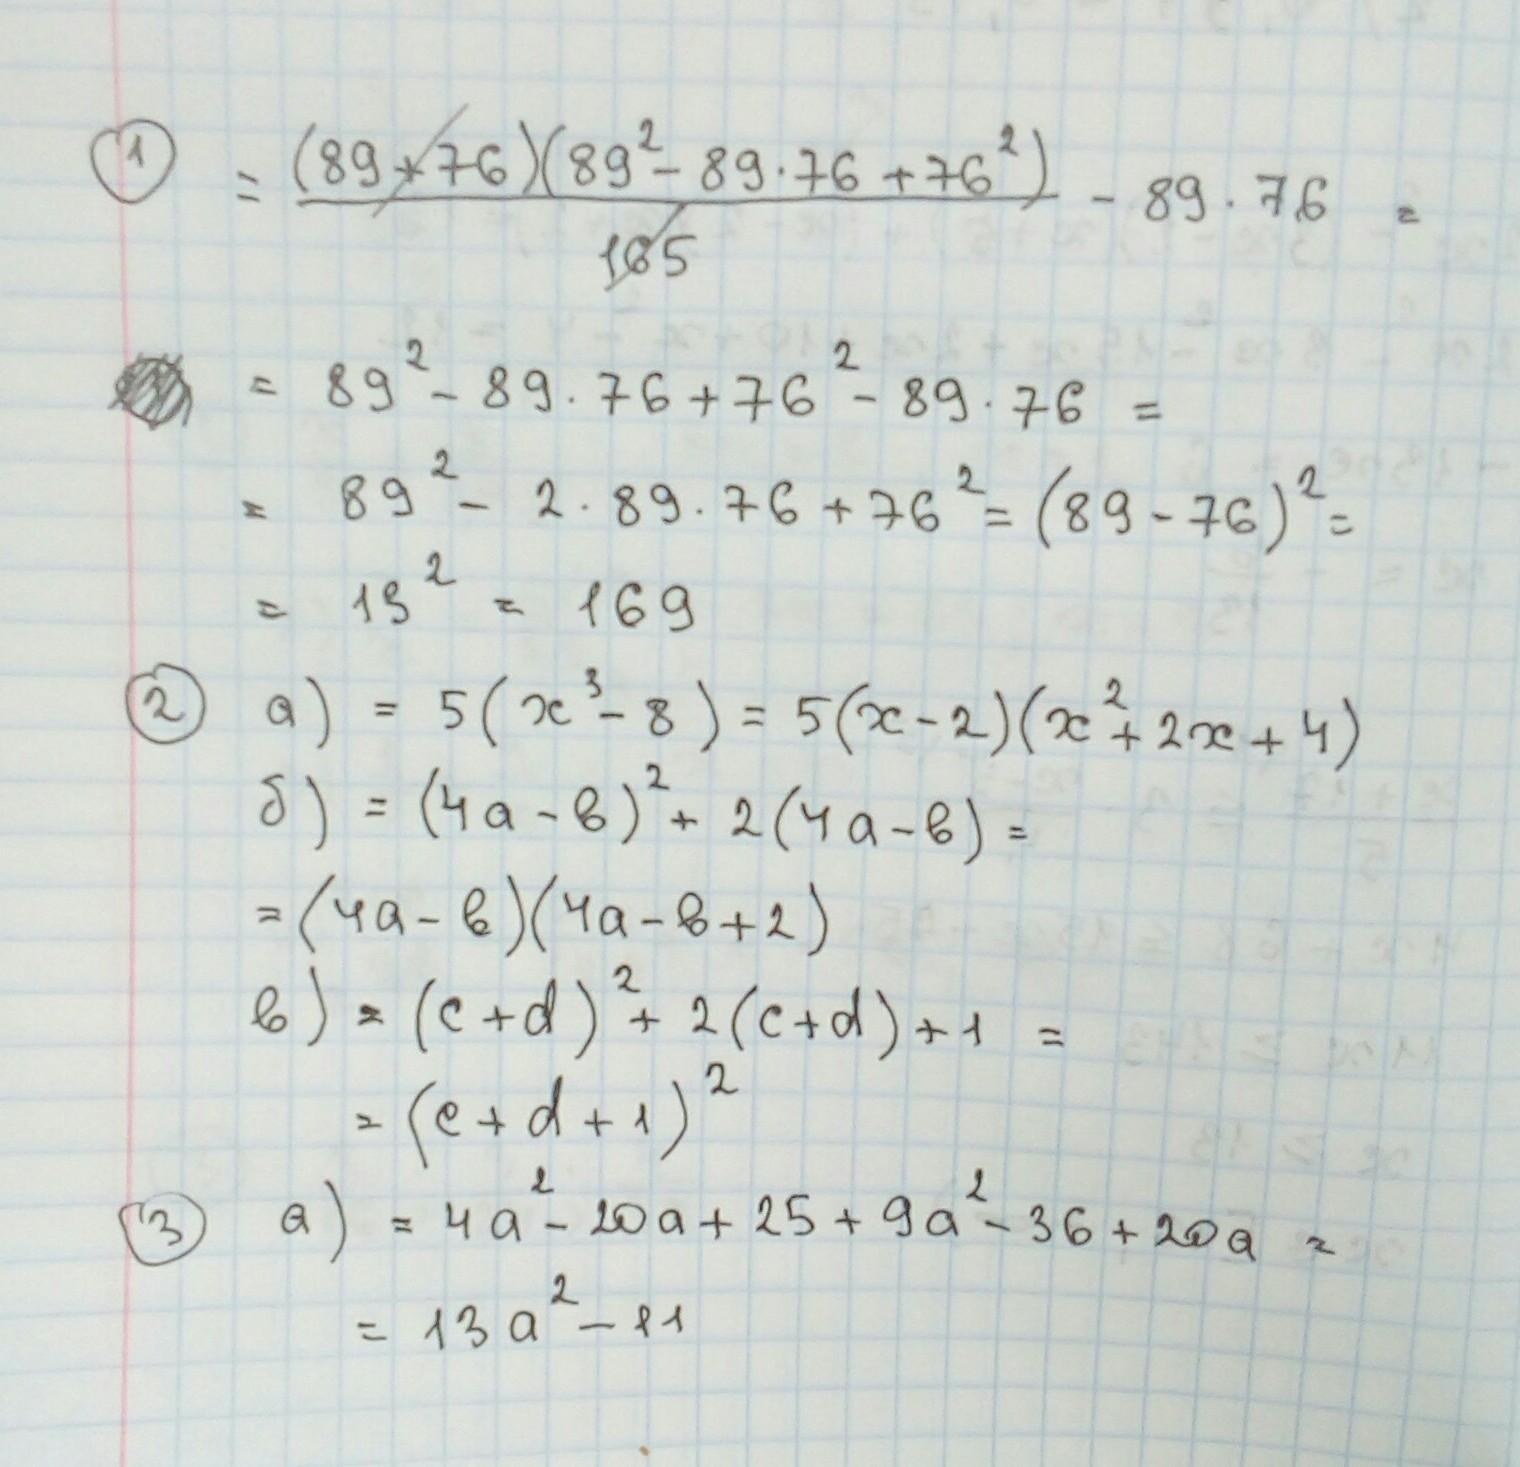 1 = (89+76)(89²-89·76+76²)/165 - 89·76 =
= 89²-89·76+76²-89·76 =
= 89²-2·89·76+76² = (89-76)² =
= 13² = 169
2 а) = 5(x³-8) = 5(x-2)(x²+2x+4)
б) = (4a-b)²+2(4a-b) =
= (4a-b)(4a-b+2)
в) = (c+d)²+2(c+d)+1 =
= (c+d+1)²
3 а) = 4a²-20a+25+9a²-36+20a =
= 13a²-11